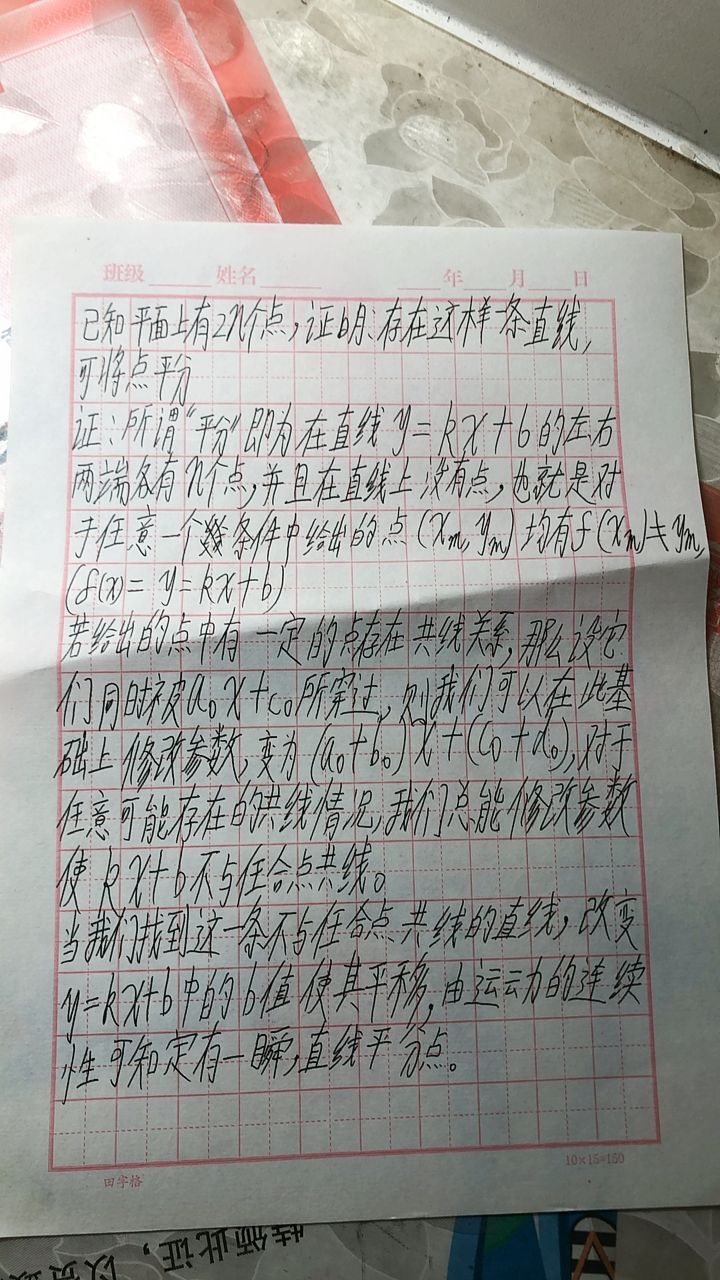 班级 姓名 年 月 日
已知平面上有2n个点,证明:存在这样一条直线,
可将点平分
证:所谓“平分”即为在直线y=kx+b的左右
两端各有n个点,并且在直线上没有点,也就是对
于任意一个条件中给出的点(xm,ym)均有f(xm)≠ym,
(f(x)=y=kx+b)
若给出的点中有一定的点存在共线关系,那么设它
们同时被a₀x+c₀所穿过,则我们可以在此基
础上修改参数,变为(a₀+b₀)x+(c₀+d₀),对于
任意可能存在的共线情况,我们总能修改参数
使kx+b不与任合点共线。
当我们找到这一条不与任合点共线的直线,改变
y=kx+b中的b值使其平移,由运动的连续
性可知定有一瞬,直线平分点。
10×15=150
田字格
特颁此证,以资